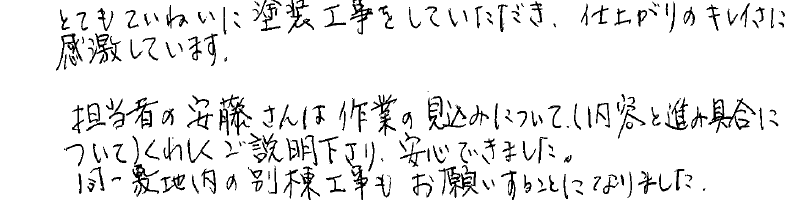 とてもていねいに塗装工事をしていただき、仕上がりのキレイさに
感激しています。
担当者の安藤さんは作業の見込みについて、(内容と進み具合に
ついて)くわしくご説明下さり、安心できました。
同一敷地内の別棟工事もお願いすることになりました。